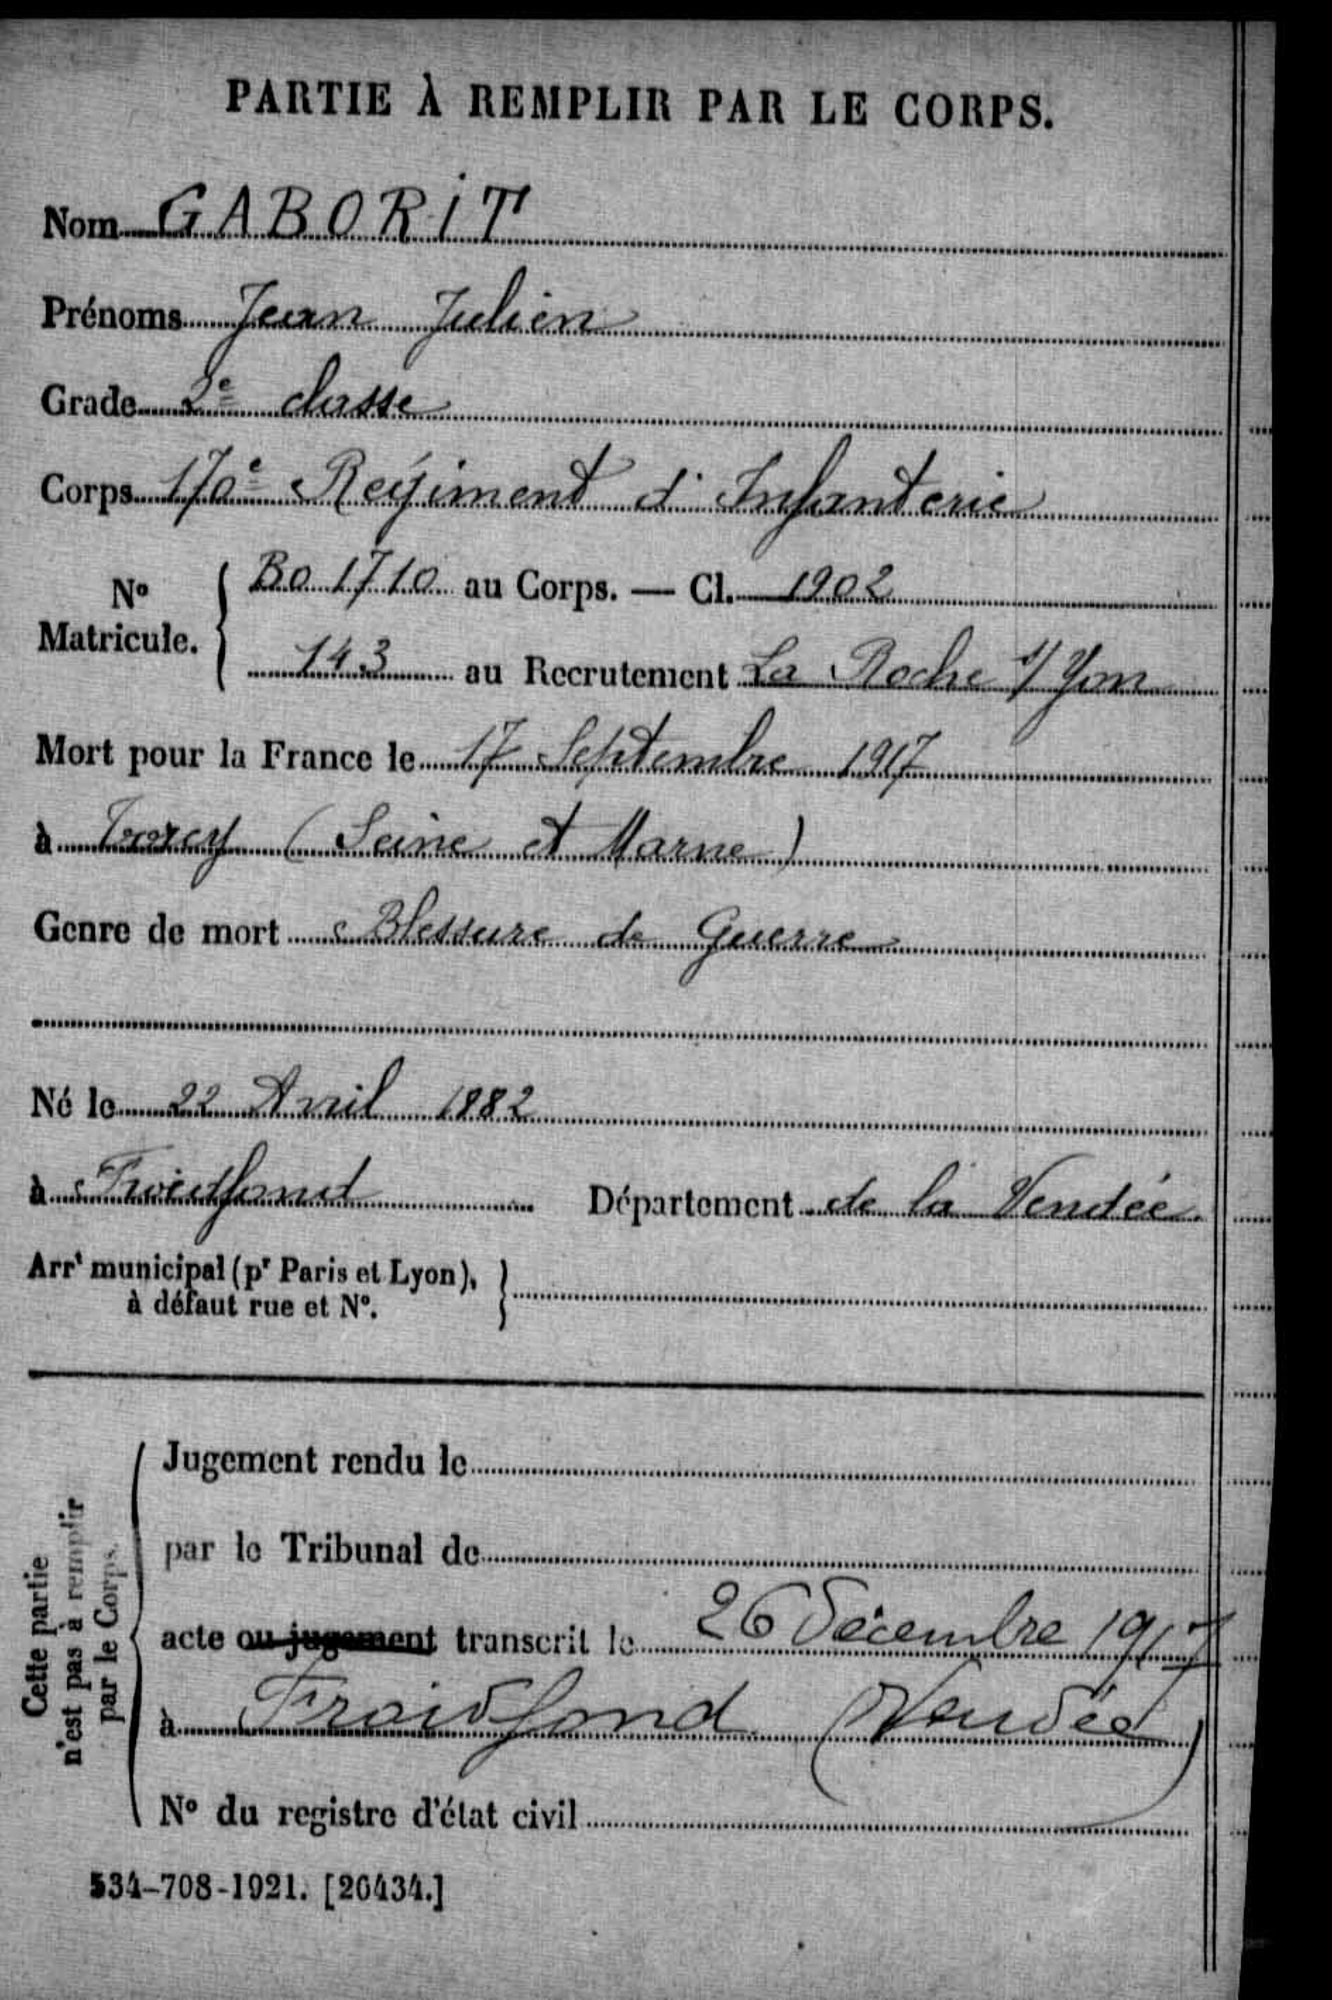 PARTIE À REMPLIR PAR LE CORPS.
Nom GABORIT
Prénoms Jean Julien
Grade 2e classe
Corps 170e Régiment d'Infanterie
No Matricule. { Bo 1710 au Corps. — Cl. 1902
143 au Recrutement La Roche s/ Yon
Mort pour la France le 17 Septembre 1917
à Torcy (Seine et Marne)
Genre de mort Blessure de Guerre
Né le 22 Avril 1882
à Froidfond Département de la Vendée
Arrt municipal (pr Paris et Lyon), à défaut rue et No. }
Cette partie n'est pas à remplir par le Corps.
Jugement rendu le
par le Tribunal de
acte ou jugement transcrit le 26 Décembre 1917
à Froidfond (Vendée)
No du registre d'état civil
534-708-1921. [26434.]